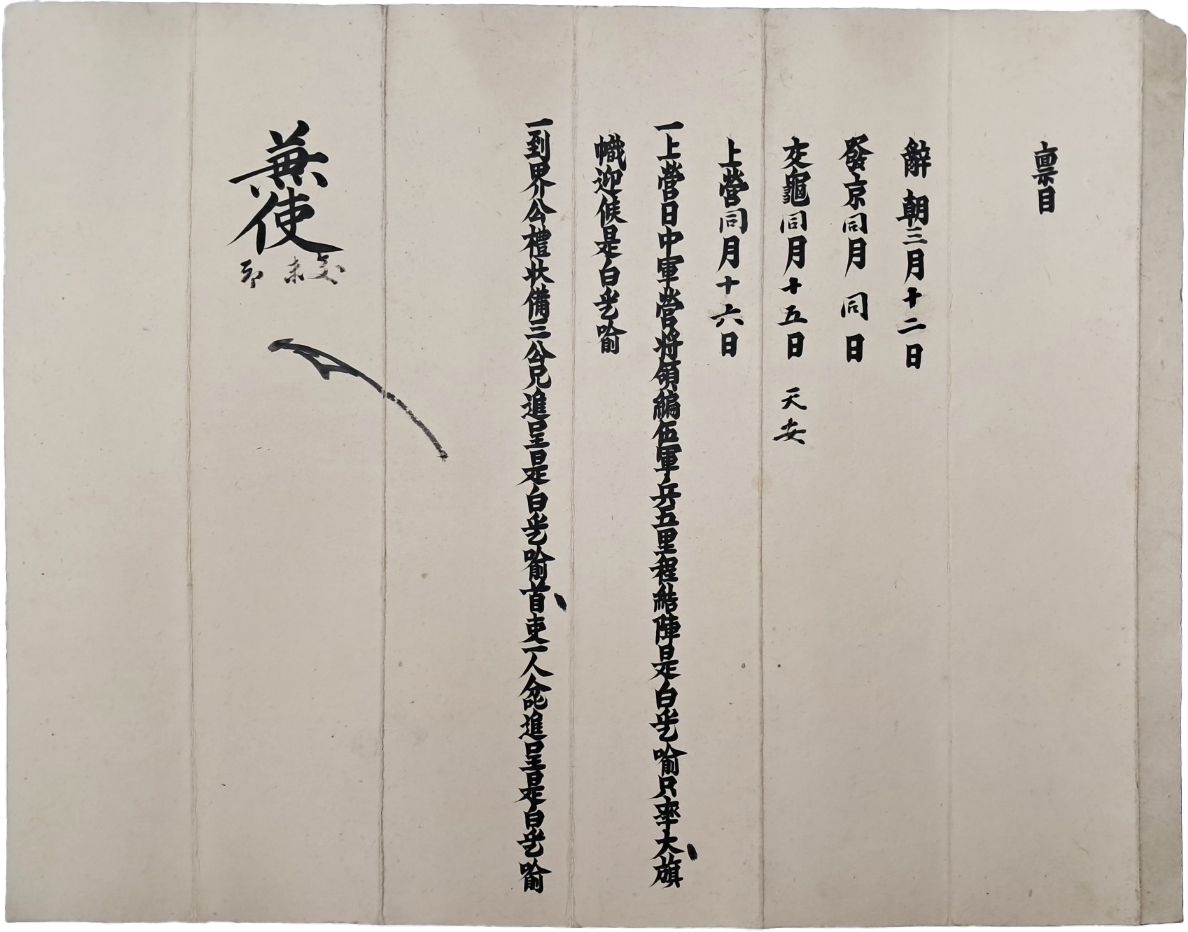 稟目
辭 朝三月十二日
發京同月 同日
交龜同月十五日 天安
上營同月十六日
一上營日中軍營將領編伍軍兵五里程結陣是白乎喩只率大旗
幟迎候是白乎喩
一到界公禮狀備三公兄進呈是白乎喩首吏一人分叱進呈是白乎喩
兼使
交
未
卽